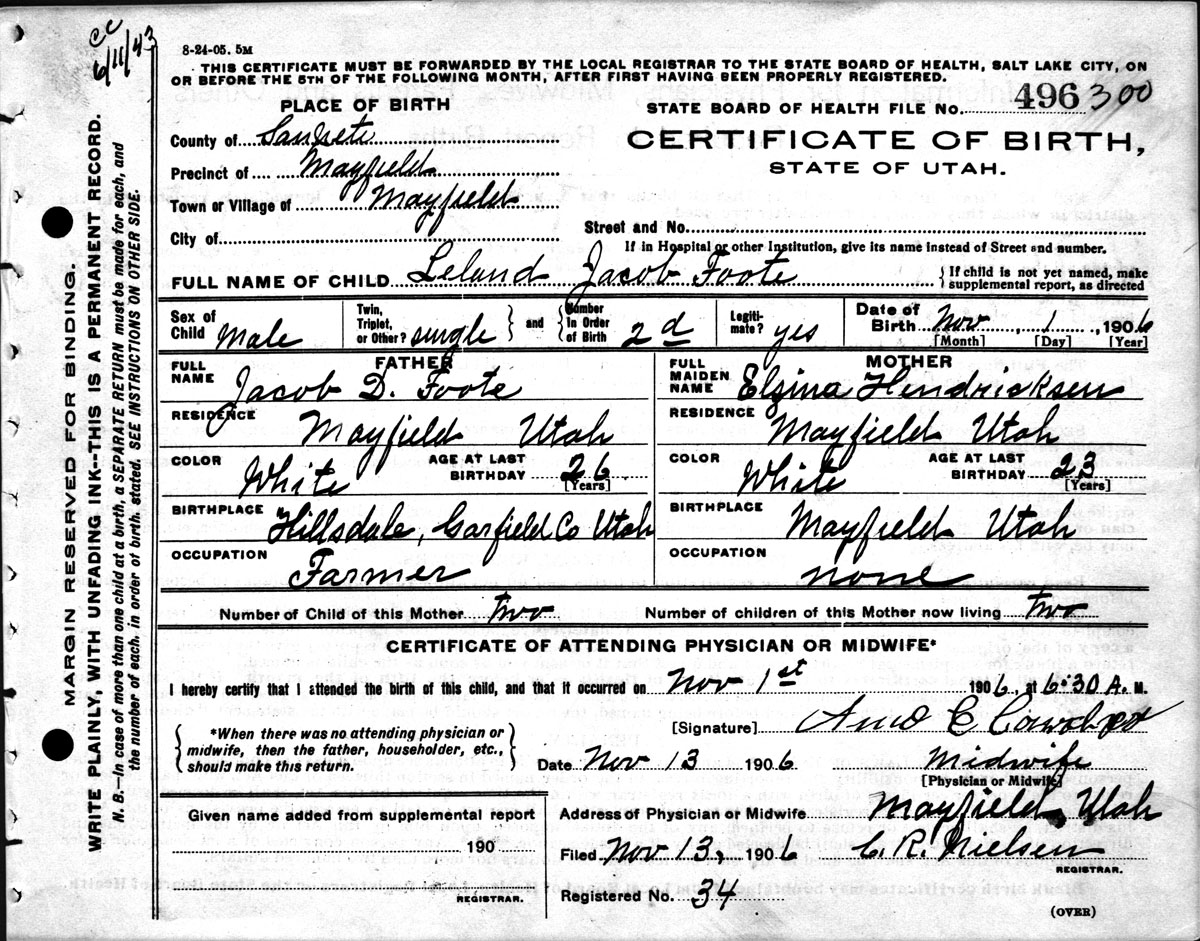 cc
6/11/43
8-24-05. 5M
THIS CERTIFICATE MUST BE FORWARDED BY THE LOCAL REGISTRAR TO THE STATE BOARD OF HEALTH, SALT LAKE CITY, ON
OR BEFORE THE 5TH OF THE FOLLOWING MONTH, AFTER FIRST HAVING BEEN PROPERLY REGISTERED.
PLACE OF BIRTH
STATE BOARD OF HEALTH FILE No. 496 300
County of Sanpete
CERTIFICATE OF BIRTH,
STATE OF UTAH.
Precinct of Mayfield
Town or Village of Mayfield
City of
Street and No.
If in Hospital or other Institution, give its name instead of Street and number.
FULL NAME OF CHILD Leland Jacob Foote
{If child is not yet named, make
supplemental report, as directed
Sex of Child Male
Twin, Triplet, or Other? single } and { Number In Order of Birth 2d
Legiti-mate? yes
Date of Birth Nov, 1, 1906
[Month] [Day] [Year]
FATHER
FULL NAME Jacob D. Foote
RESIDENCE Mayfield Utah
COLOR White AGE AT LAST BIRTHDAY 26 [Years]
BIRTHPLACE Hillsdale, Garfield Co Utah
OCCUPATION Farmer
MOTHER
FULL MAIDEN NAME Elsina Hendricksen
RESIDENCE Mayfield Utah
COLOR White AGE AT LAST BIRTHDAY 23 [Years]
BIRTHPLACE Mayfield Utah
OCCUPATION none
Number of Child of this Mother two Number of children of this Mother now living two
CERTIFICATE OF ATTENDING PHYSICIAN OR MIDWIFE*
I hereby certify that I attended the birth of this child, and that it occurred on Nov 1st 1906, at 6:30 A. M.
{*When there was no attending physician or
midwife, then the father, householder, etc.,
should make this return.}
[Signature]
Date Nov 13 1906 Midwife
[Physician or Midwife]
Given name added from supplemental report
190
REGISTRAR.
Address of Physician or Midwife Mayfield, Utah
Filed Nov 13, 1906 C. R. Nielsen
REGISTRAR.
Registered No. 34
(OVER)
MARGIN RESERVED FOR BINDING.
WRITE PLAINLY, WITH UNFADING INK--THIS IS A PERMANENT RECORD.
N. B.—In case of more than one child at a birth, a SEPARATE RETURN must be made for each, and
the number of each, in order of birth, stated. SEE INSTRUCTIONS ON OTHER SIDE.